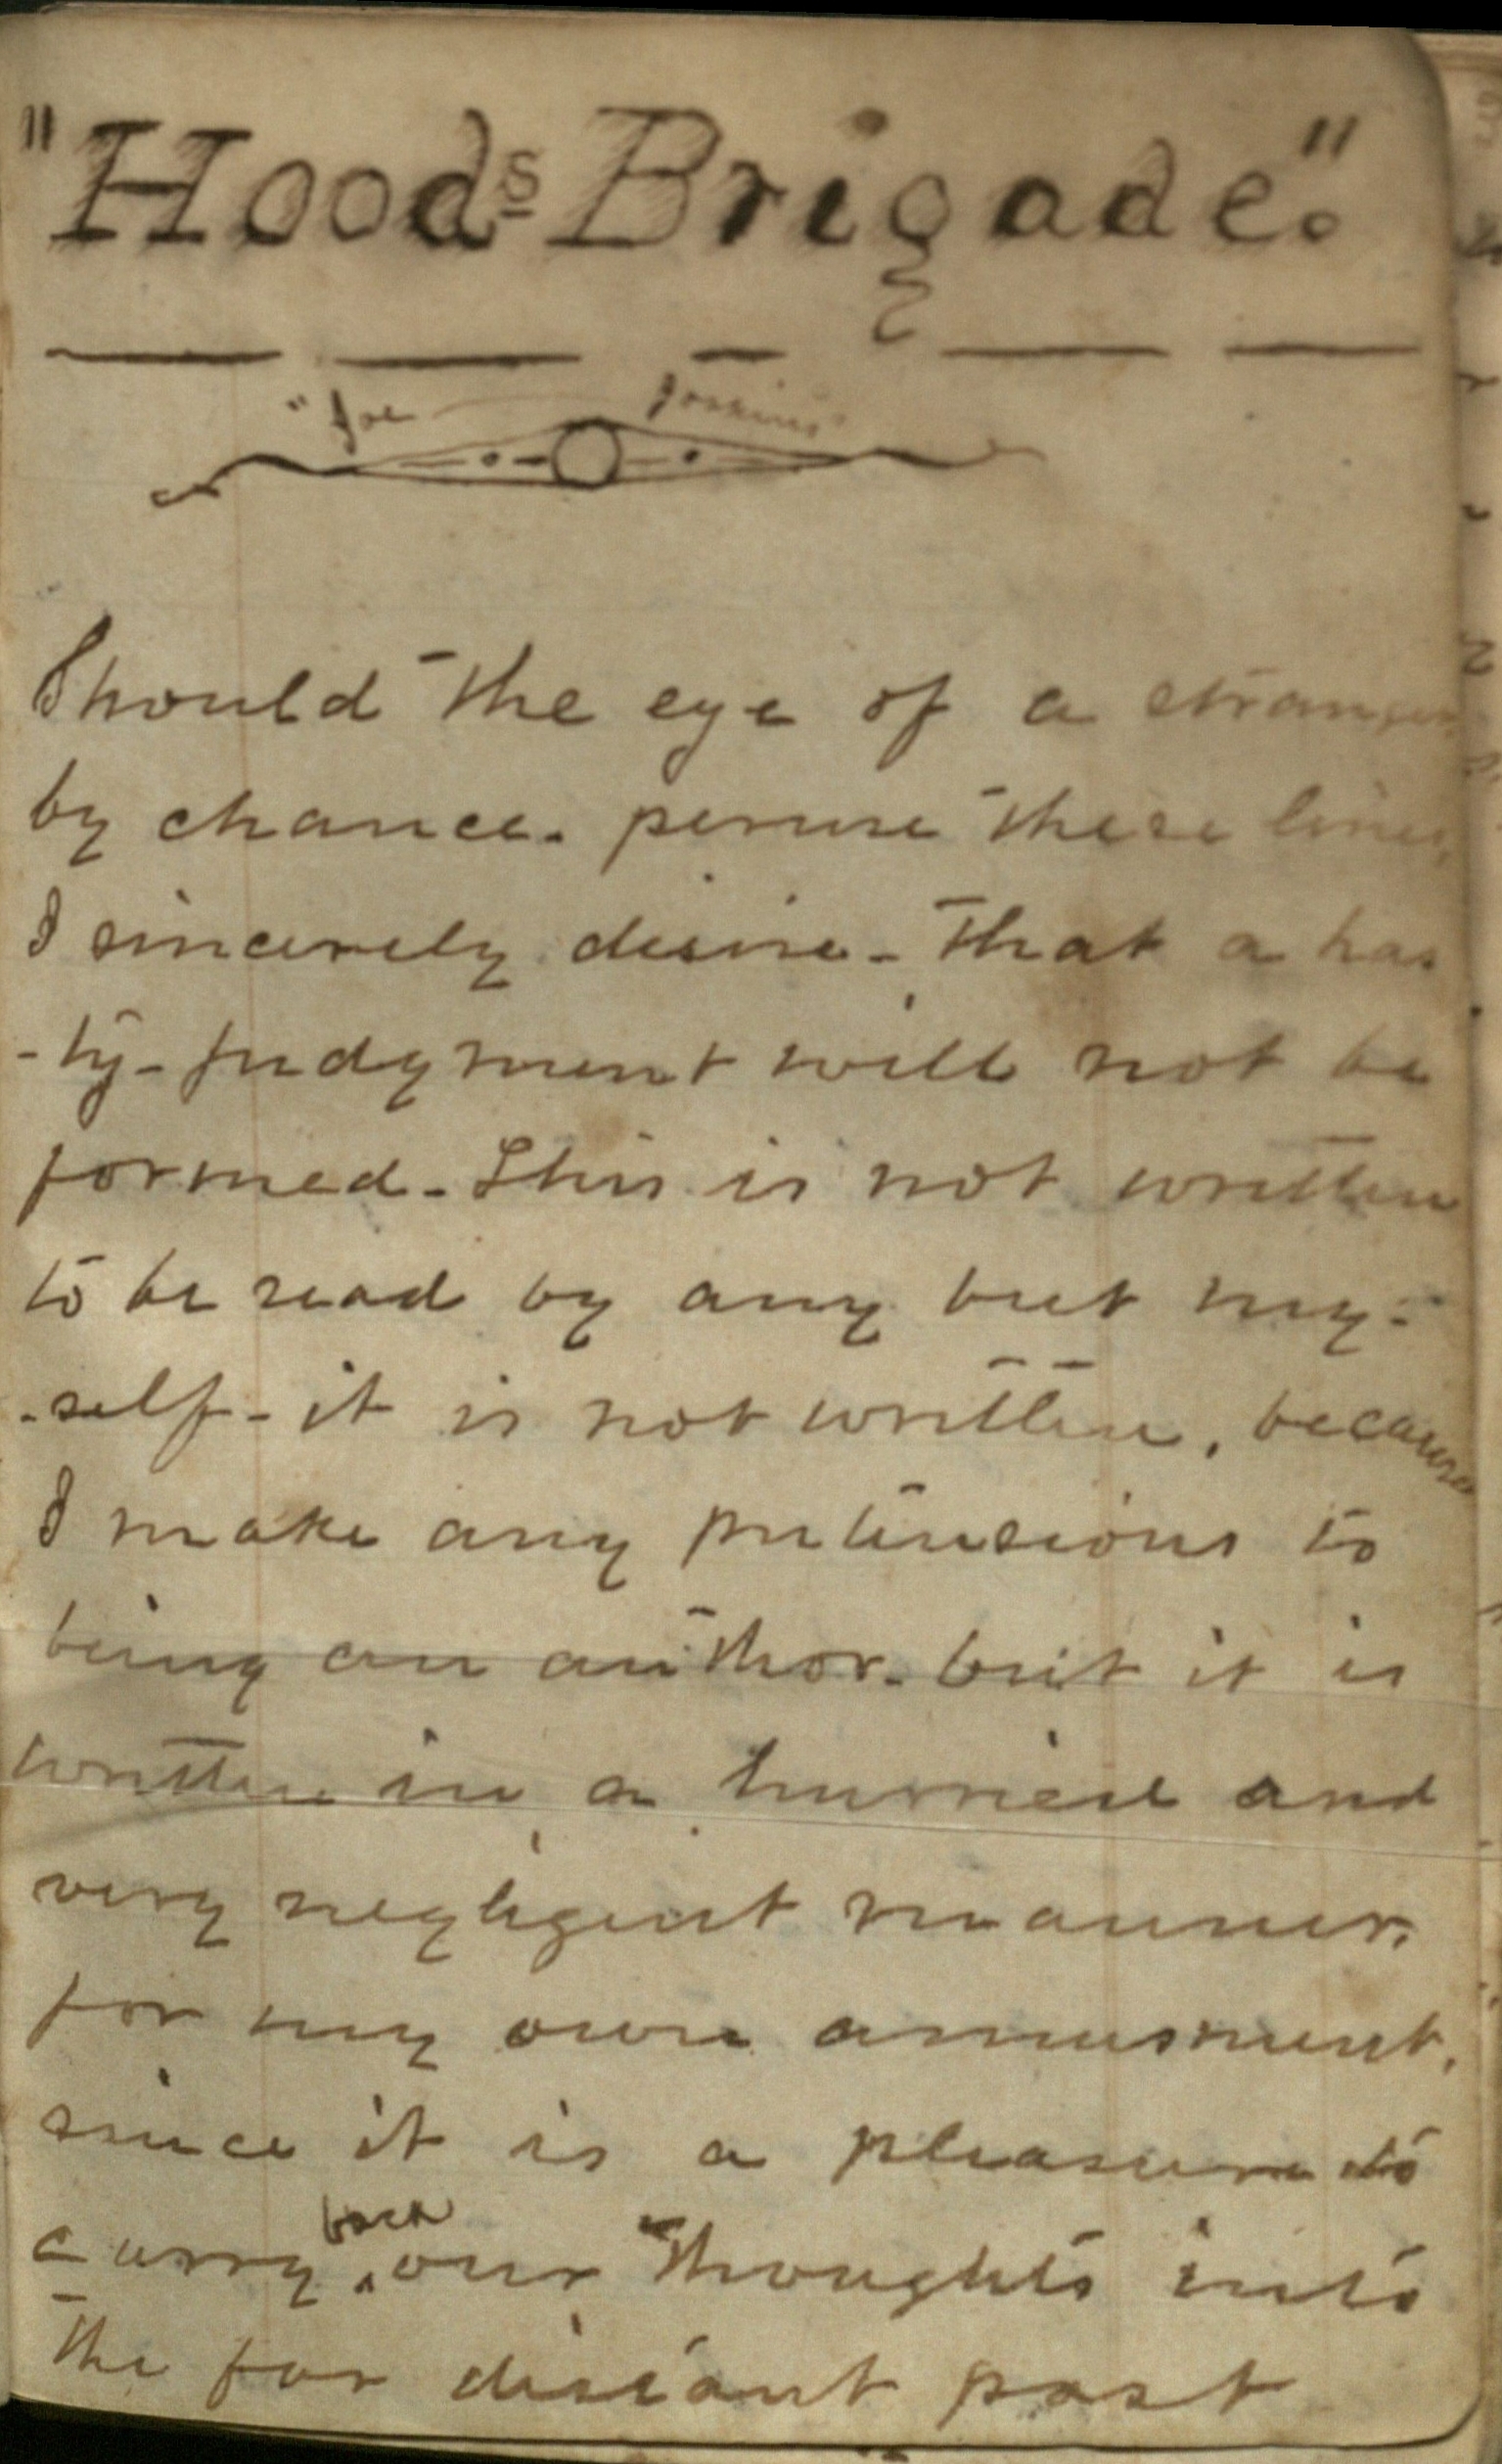 "Hoods Brigade."
"Joe Joskins"
Should the eye of a stranger
by chance. peruse these lines,
I sincerely desire - that a has
-ty - judgment will not be
formed - This is not written
to be read by any but my-
-self - it is not written, because
I make any pretensions to
being an author. but it is
written in a hurried and
very negligent manner,
for my own amusment,
since it is a pleasure to
carry back our thoughts into
the far distant past